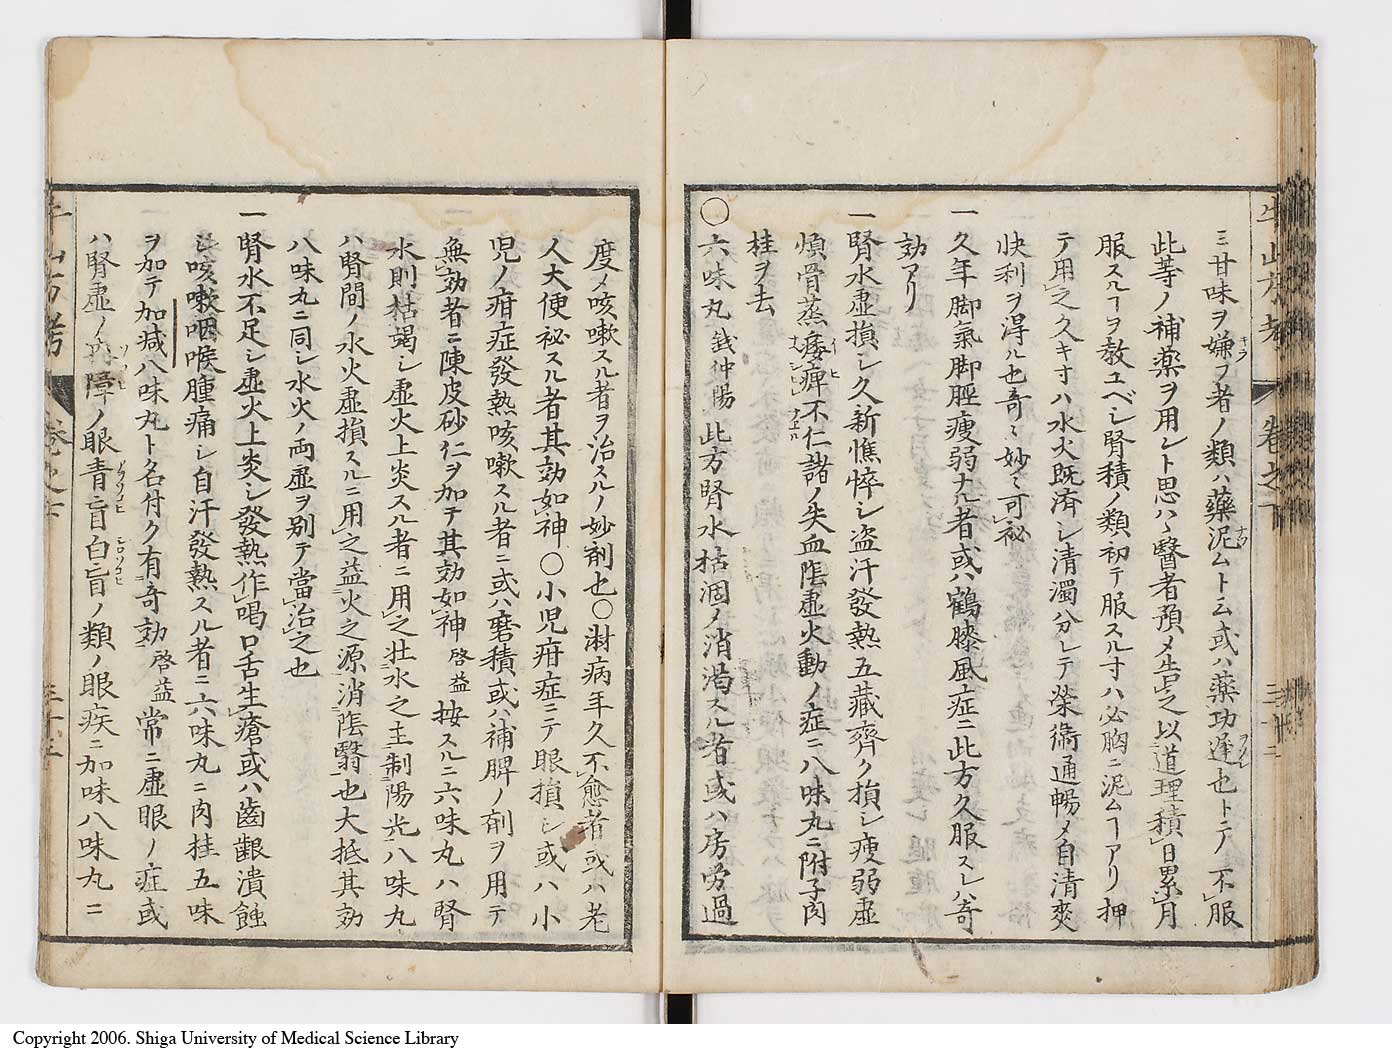 ミ甘味ヲ嫌フ者ノ類ハ藥泥ムト云或ハ藥功遅也トテ不服
此等ノ補薬ヲ用レト思ハヽ醫者預メ告之以道理積日累月
服スルヿヲ教ユベシ腎積ノ類初テ服スル寸ハ必胸ニ泥ムヿアリ押
テ用之久キ寸ハ水火既済シ清濁分レテ栄衛通暢メ自清爽
快利ヲ淂ル也奇〻妙〻可秘
一久年脚氣脚脛痩弱ナル者或ハ鶴膝風症ニ此方久服スレハ奇
効アリ
一腎水虚損シ久新憔悴シ盗汗發熱五藏齊ク損シ瘦弱虚
煩骨蒸痿痺不仁諸ノ失血陰虚火動ノ症ニ八味丸ニ附子肉
桂ヲ去
〇六味丸 銭仲陽 此方腎水枯涸ノ消渇スル者或ハ房労過
牛山方考 巻之下
度メ咳嗽スル者ヲ治スルノ妙剤也〇淋病年久不愈者或ハ老
人大便祕スル者其効如神〇小児疳症ニテ眼損シ或ハ小
児ノ疳症發熱咳嗽スル者ニ或ハ磨積或ハ補脾ノ剤ヲ用テ
無効者ニ陳皮砂仁ヲ加テ其効如神 啓益 按スルニ六味丸ハ腎
水則枯竭シ虚火上炎スル者ニ用之壮水之主制陽光八味丸
ハ腎間ノ水火虚損スルニ用之益火之源消陰翳也大抵其効
八味丸ニ同シ水火ノ両虚ヲ別テ當治之也
一腎水不足シ虚火上炎シ發熱作渇口舌生瘡或ハ齒齦潰蝕
シ咳嗽咽喉腫痛シ自汗發熱スル者ニ六味丸ニ肉桂五味
ヲ加テ加減八味丸ト名付ク有奇効 啓益 常ニ虚眼ノ症或
ハ腎虚ノ内障ノ眼青盲白盲ノ類ノ眼疾ニ加味八味丸ニ
牛山方考 巻之下
Copyright 2006. Shiga University of Medical Science Library